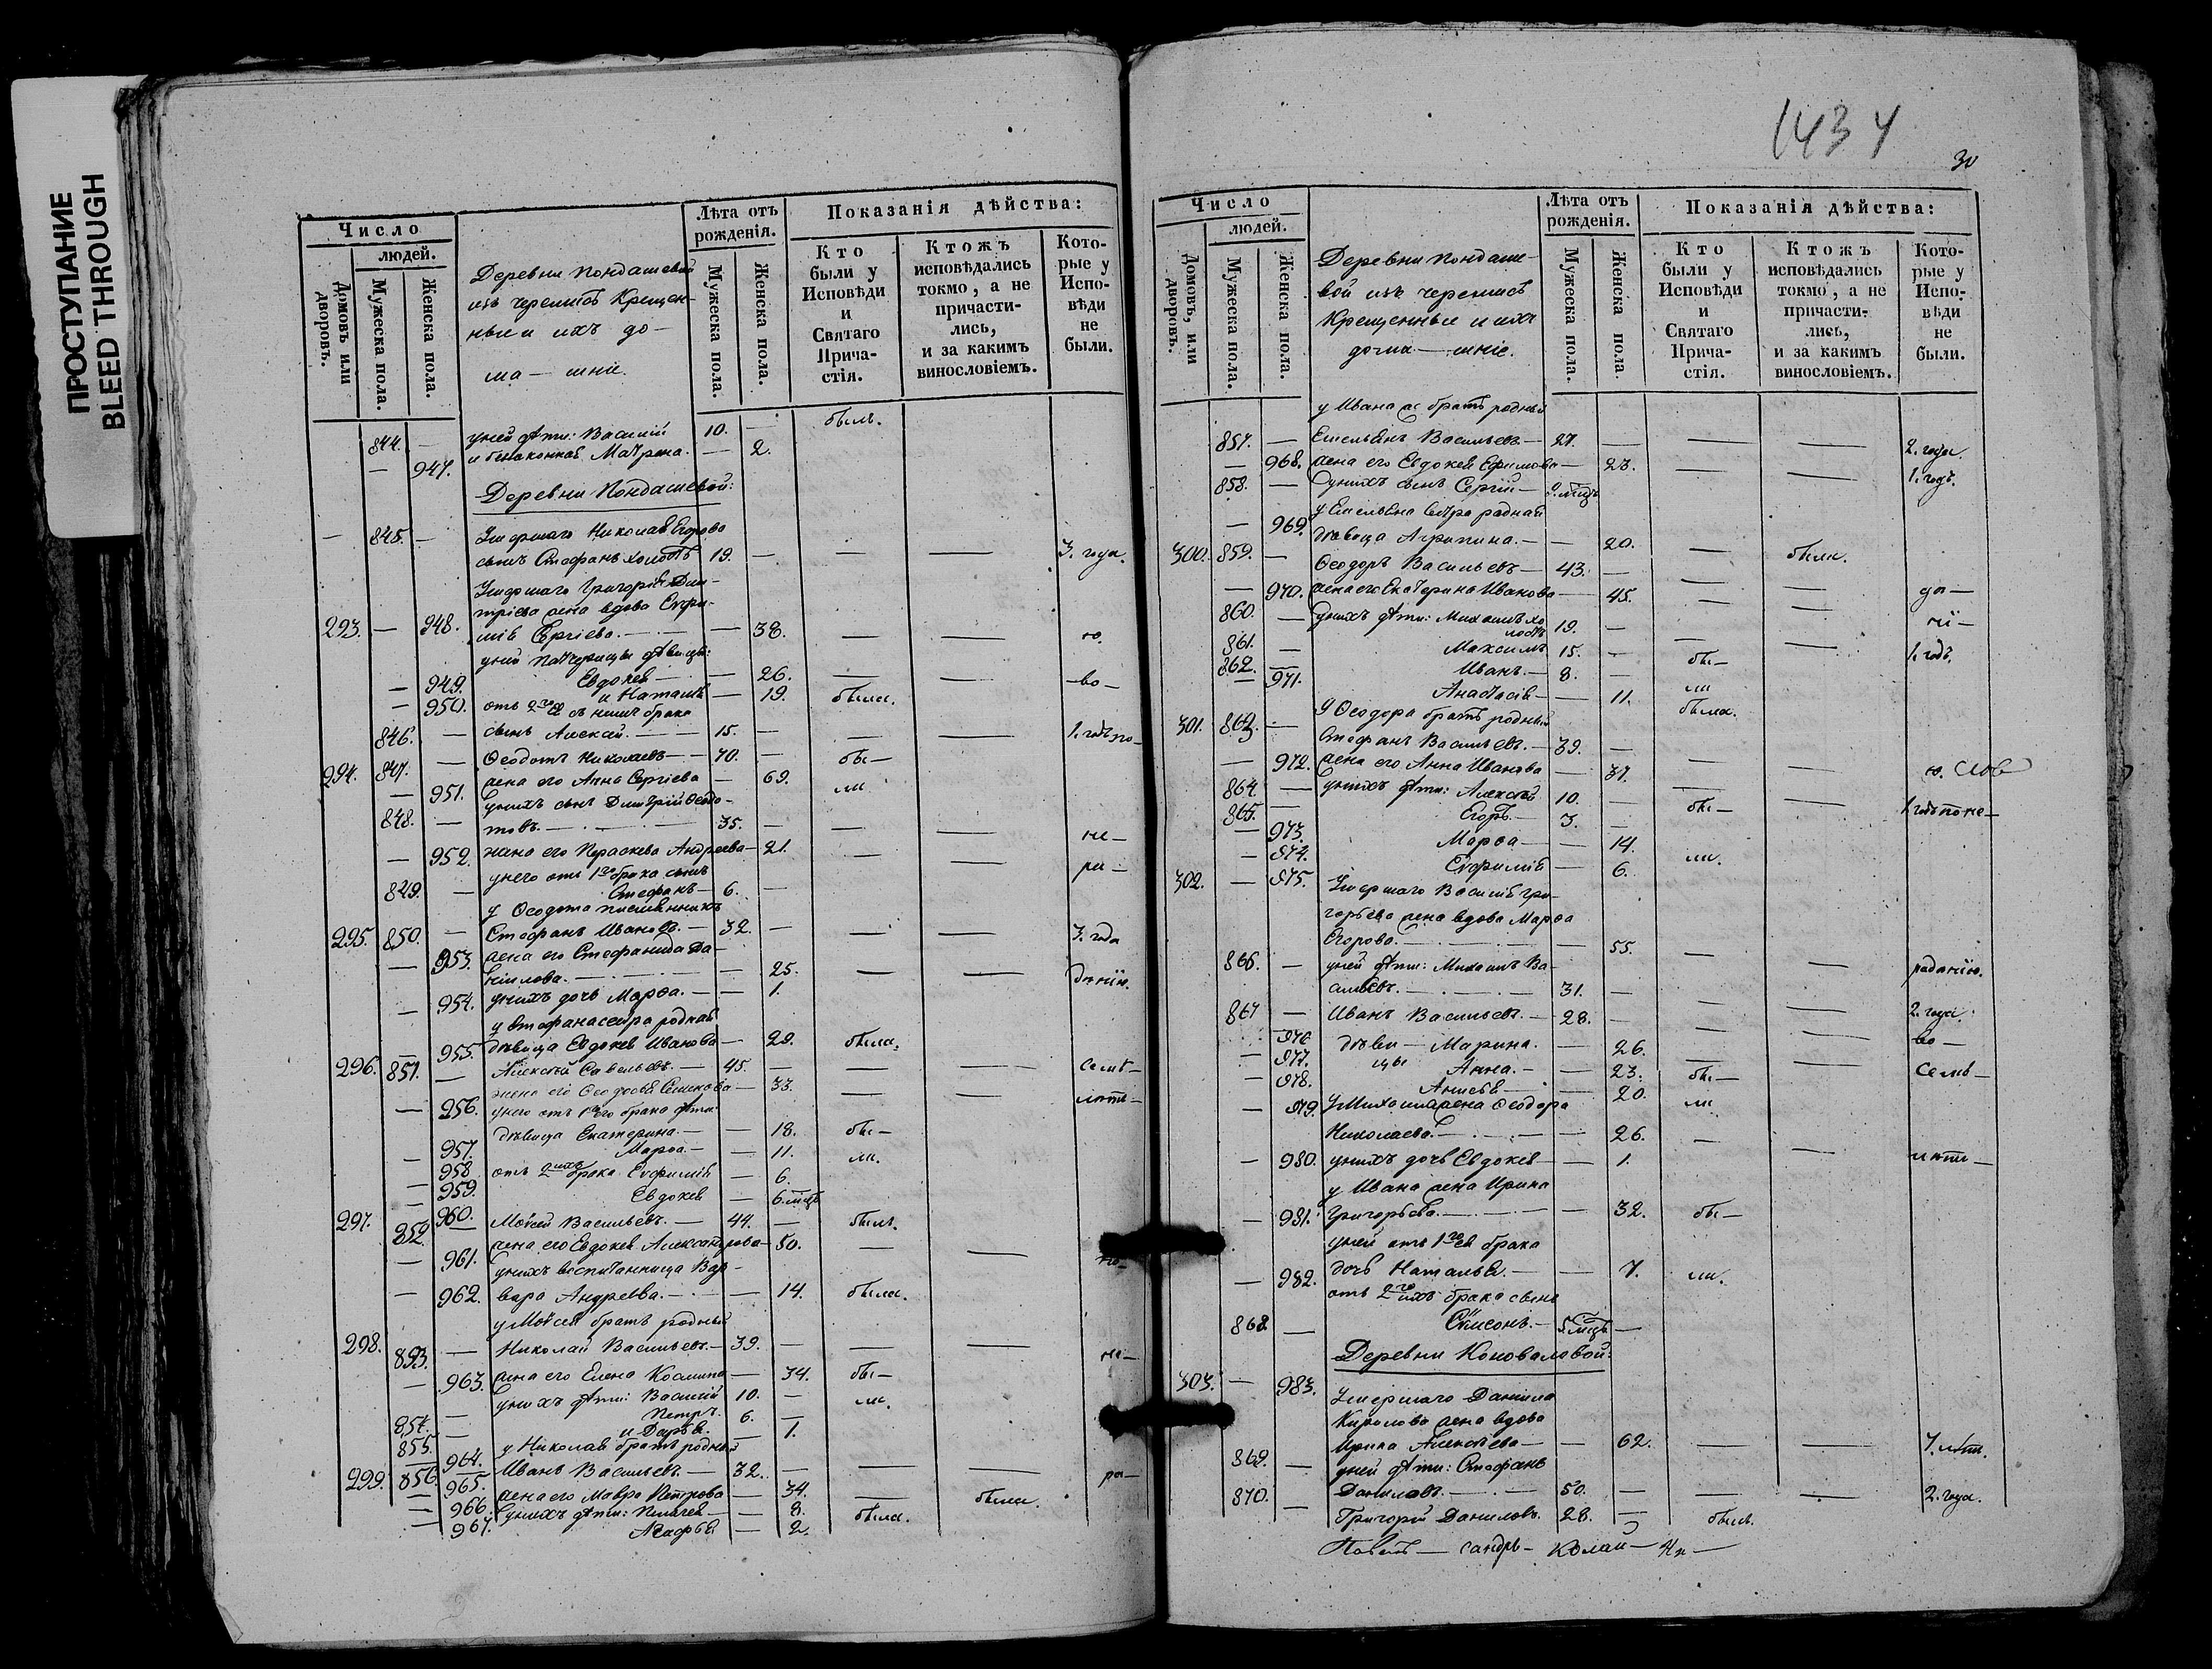 ПРОСТУПАНИЕ
BLEED THROUGH
Число
людей.
Домовъ или дворовъ.
Мужеска пола.
Женска пола.
Деревни Пондашевой
изъ черемисъ Крещен-
ные и ихъ до-
ма — шніе.
Лѣта отъ рожденія.
Мужеска пола.
Женска пола.
Показанія дѣйства:
Кто были у Исповѣди и Святаго Прича- стія.
Ктожъ исповѣдались токмо, а не причасти- лись, и за какимъ винословіемъ.
Кото- рые у Испо- вѣди не были.
844. — у ней дѣти: Василій 10. — былъ.
— 947. Матрона. — 2.
Деревни Пондашевой:
— 845. — Умершаго Николая Егорова
сынъ Стефанъ холостъ 19. — — — 3. года.
Умершаго Григорія Дми-
тріева жена вдова Евфи-
293. — 948. мія Сергіева. — — 38. — — ю.
у ней падчерицы дѣвицы:
— 949. Евдокея — — 26. — — во —
— 950. и Наталья — 19. были.
отъ 2го съ нимъ брака
846. — сынъ Алексей. — 15. — — — 1. годъ по —
294. 847. — Ѳеодотъ Николаевъ — 70. — бы —
— 951. жена его Анна Сергіева — 69. ли
848. — у нихъ сынъ Дмитрій Ѳеодо-
товъ. — 35. — — — не —
— 952. жена его Параскева Андреева — 21. — — ра —
у него отъ 1го брака сынъ
849. — Стефанъ — 6. —
у Ѳеодота племянникъ
295. 850. — Стефанъ Ивановъ. — 32. — — — 3. года
— 953. жена его Стефанида Да-
ніилова. — — 25. — — дѣнію.
— 954. у нихъ дочь Марѳа. — — 1.
у Стефана сестра родная
— 955. дѣвица Евдокея Иванова — 29. была.
296. 851. — Алексѣй Савельевъ. — 45. — — — семь —
— 956. жена его Ѳеодосья Семенова — 33. — — лѣтъ —
у него отъ 1го его брака дѣти:
— 957. дѣвица Екатерина. — — 18. бы —
— 958. Марѳа. — — 11. ли.
— 959. отъ 2го ихъ брака Евфимія — 6.
— 960. Евдокея — 6. мцъ
297. 852. — Моисей Васильевъ. — 44. — былъ.
— 961. жена его Евдокея Александрова — 50. — — по —
у нихъ воспитанница Вар-
— 962. вара Андреева. — — 14. была.
у Моисея братъ родный
298. 853. — Николай Васильевъ. — 39. — — — не —
— 963. жена его Елена Косьмина — 34. бы —
854. — у нихъ дѣти: Василій 10. — ли.
855. — Петръ. 6. —
— 964. и Дарья. — 1.
у Николая братъ родный
299. 856. — Иванъ Васильевъ. — 32. — — — ра —
— 965. жена его Мавра Петрова — 34. — были.
— 966. у нихъ дѣти: Пелагея — — 8. были.
— 967. Агафья — 2.
1434
30
Число
людей.
Домовъ, или дворовъ.
Мужеска пола.
Женска пола.
Деревни Пондаше-
вой изъ черемисъ
Крещенные и ихъ
дома — шніе.
Лѣта отъ рожденія.
Мужеска пола.
Женска пола.
Показанія дѣйства:
Кто были у Исповѣди и Святаго Прича- стія.
Ктожъ исповѣдались токмо, а не причасти- лись, и за какимъ винословіемъ.
Кото- рые у Испо- вѣди не были.
у Ивана братъ родный
857. — Емельянъ Васильевъ — 27. — — — 2. года.
— 968. жена его Евдокея Ефимова — 23. — — 1. годъ.
858. — у нихъ сынъ Сергій — 9. мцъ
у Емельяна сестра родная
— 969. дѣвица Агрипина. — — 20. — были.
300. 859. — Ѳеодоръ Васильевъ — 43. — — — дѣ —
— 970. жена его Екатерина Иванова — 45. — — ні —
860. — у нихъ дѣти: Михаилъ холостъ 19. — — — 1. годъ.
861. — Максимъ 15. — бы —
862. — Иванъ. — 8. — ли
— 971. Анастасія — 11. была.
у Ѳеодора братъ родный
301. 863. — Стефанъ Васильевъ. — 39. —
— 972. жена его Анна Иванова — 37. — — ю. слов
864. — у нихъ дѣти: Алексѣй 10. — бы — — 1. годъ по не —
865. — Егоръ. — 3. —
— 973. Марѳа — — 14. ли.
— 974. Евфимія — 6.
302. — 975. Умершаго Василія Гри-
горьева жена вдова Марѳа
Егорова. — — 55. — —
866. — у ней дѣти: Михаилъ Ва-
сильевъ. — 31. — — — радѣнію.
867 — Иванъ Васильевъ. — 28. — — — 2. года.
— 976 дѣви — Марина. — — 26. — — во —
— 977. цы Анна. — — 23. бы — — семь —
— 978. Анисья — — 20. ли
— 979. у Михаила жена Ѳеодора
Николаева. — — 26. — —
— 980. у нихъ дочь Евдокея — 1. лѣтъ —
у Ивана жена Ирина
— 981. Григорьева. — — 32. бы —
у ней отъ 1го ея брака
— 982. дочь Наталья. — — 7. ли.
отъ 2го ихъ брака сынъ
868 — Симеонъ. — 5. мцъ —
Деревни Коноваловой:
303. — 983. Умершаго Данила
Кирилова жена вдова
Ирина Алексѣева — — 62. — — 7. лѣтъ.
869. — у ней дѣти: Стефанъ
Даниловъ. — 50. — — — 2. года.
870. — Григорій Даниловъ. 28. — былъ.